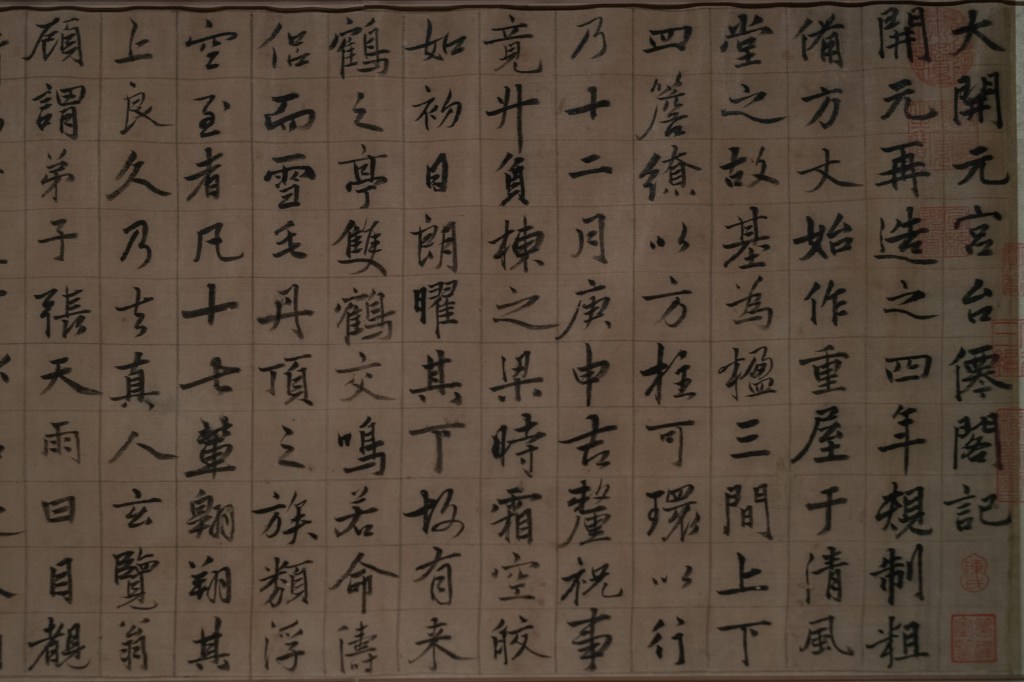 大開元宮台僊閣記
開元再造之四年規制粗
備方丈始作重屋于清風
堂之故基為楹三間上下
四簷繚以方柱可環以行
乃十二月庚申吉釐祝事
竟升負棟之梁時霜空皎
如初日朗曜其下故有来
鶴之亭雙鶴交鳴若命儔
侣而雪毛丹頂之族類浮
空至者凡十七輩翱翔其
上良久乃去真人玄覽翁
顧謂弟子張天雨曰目覩